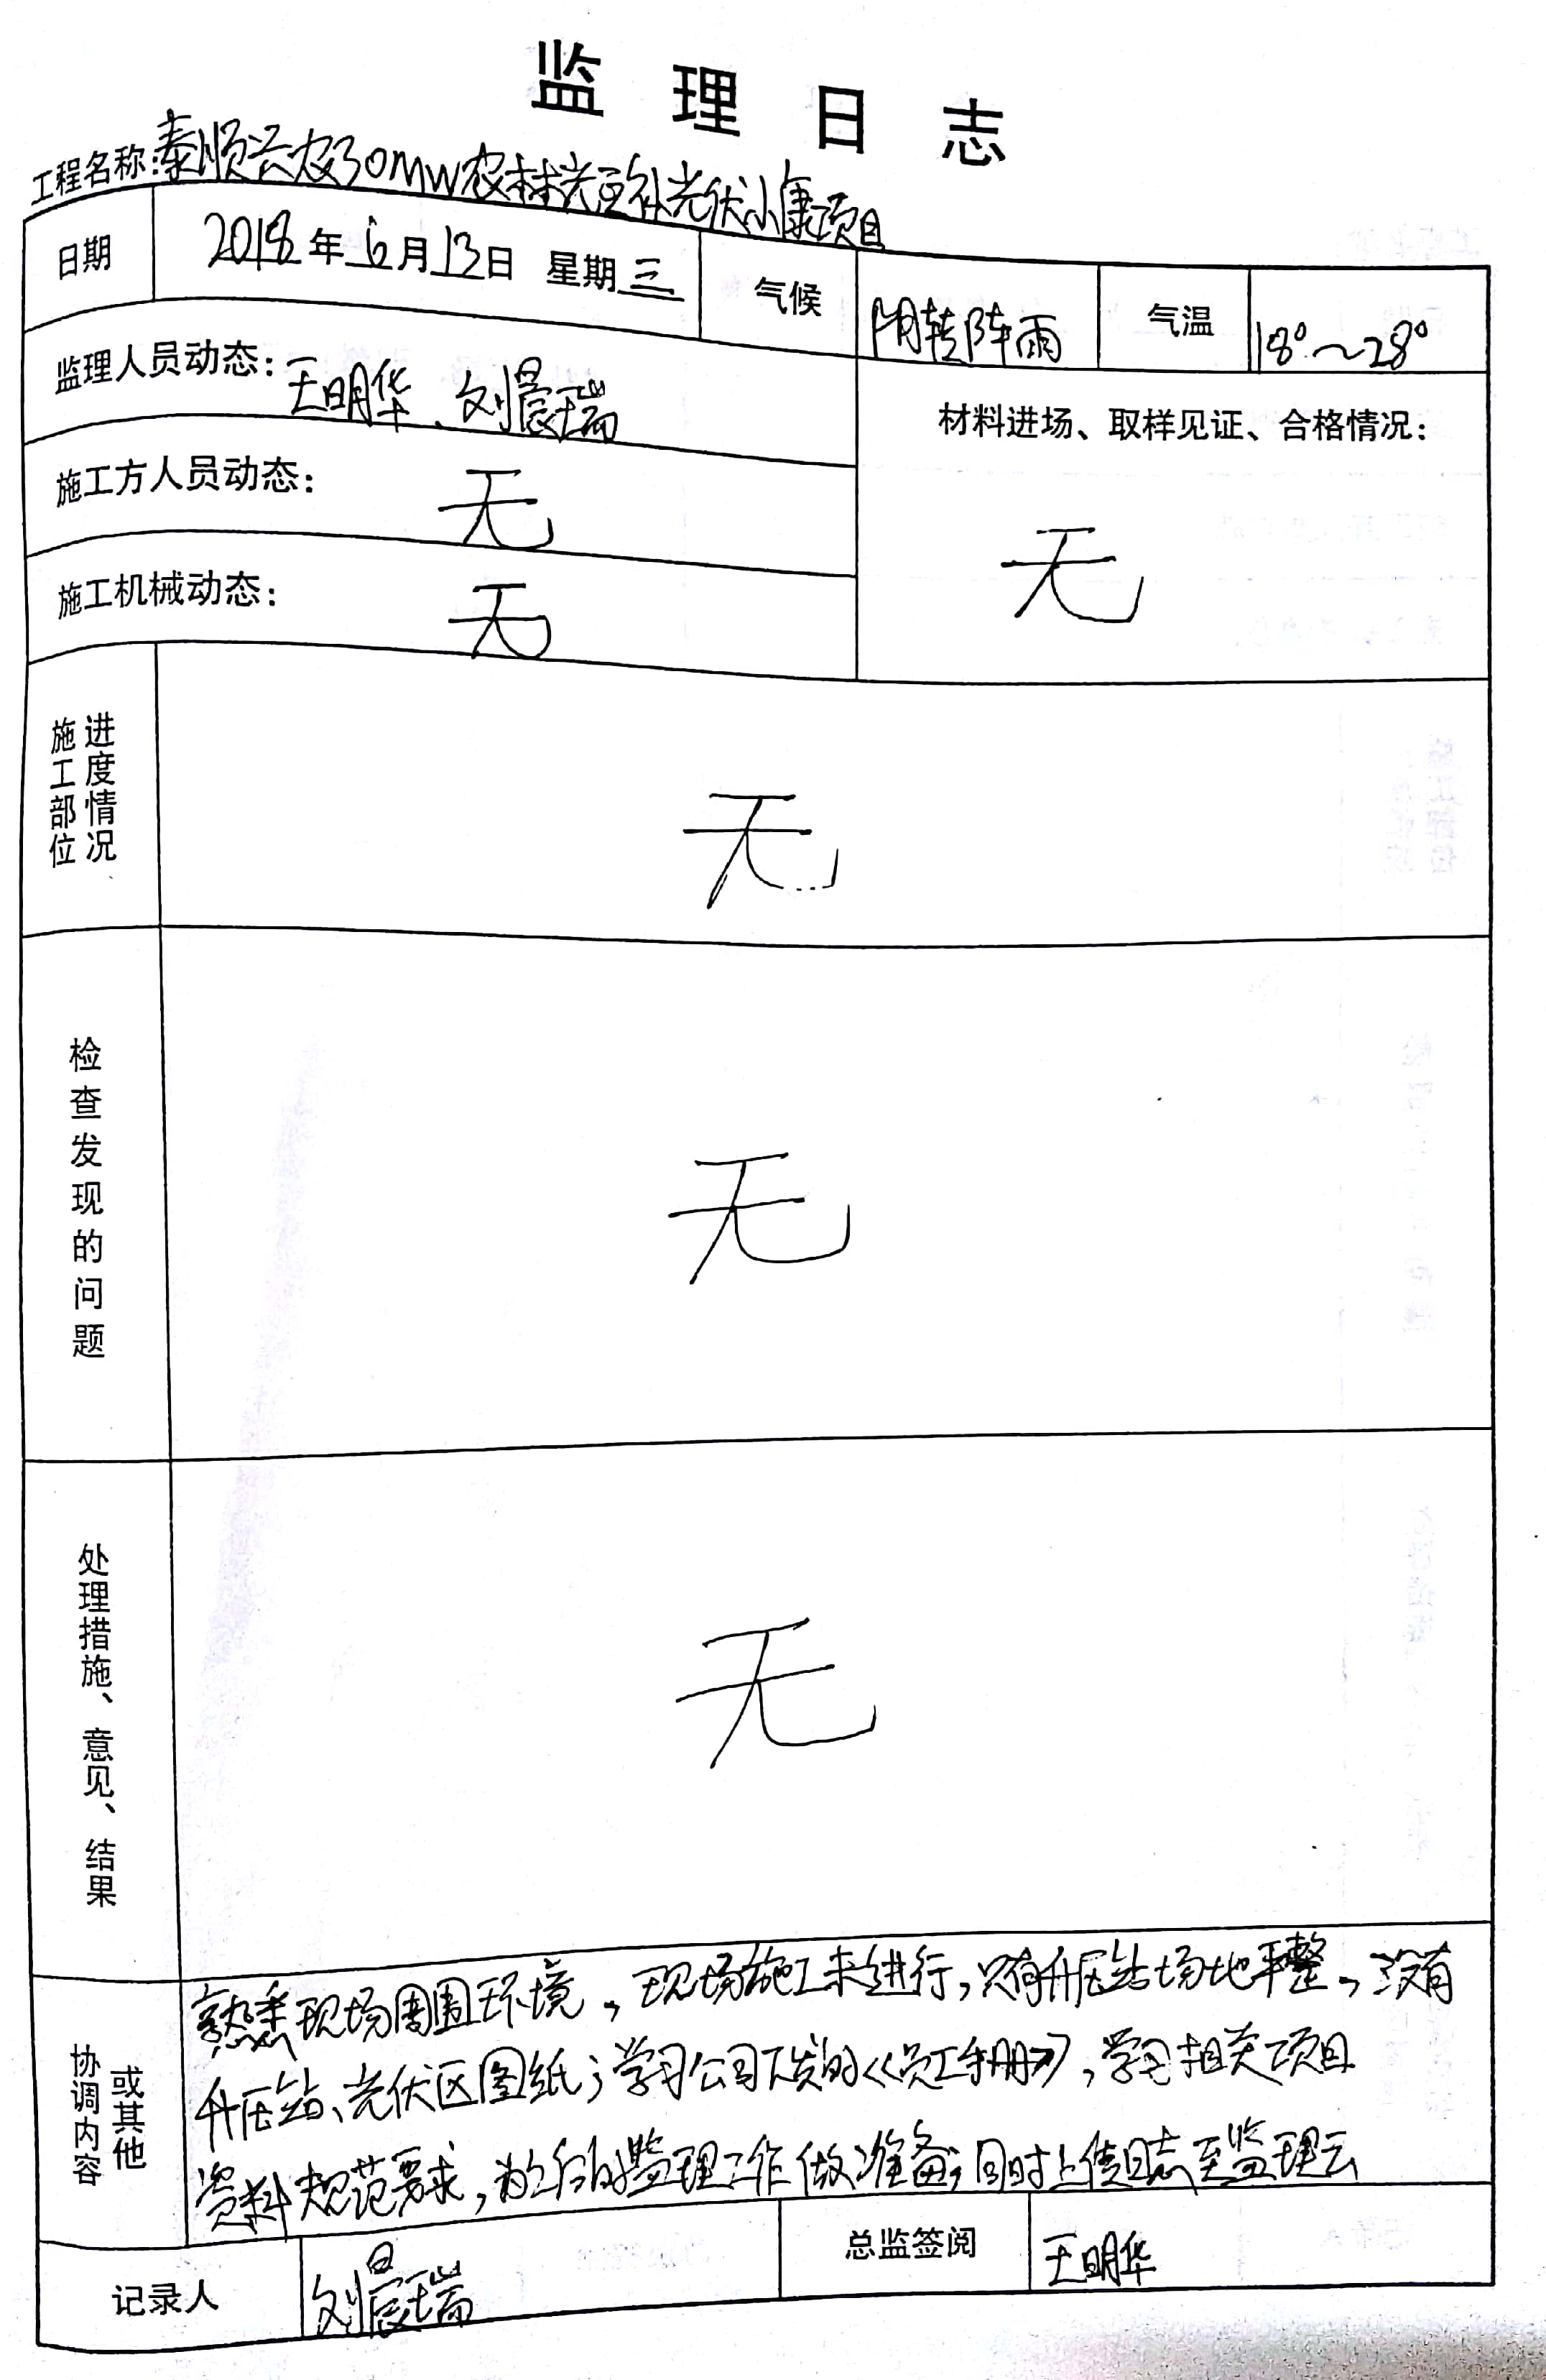 监理日志
工程名称:泰顺兴农30MW农林光互补光伏小康项目
日期 2018年6月13日 星期三 气候 阴转阵雨 气温 18°~28°
监理人员动态:王明华、刘晨瑞
材料进场、取样见证、合格情况:
无
施工方人员动态: 无
施工机械动态: 无
施工部位
进度情况
无
检查发现的问题
无
处理措施、意见、结果
无
协调内容
或其他
熟悉现场周围环境,现场施工未进行,只有升压站场地平整,没有
升压站、光伏区图纸;学习公司下发的《员工手册》,学习相关项目
资料规范要求,为之后的监理工作做准备;同时上传日志至监理云
记录人 刘晨瑞 总监签阅 王明华